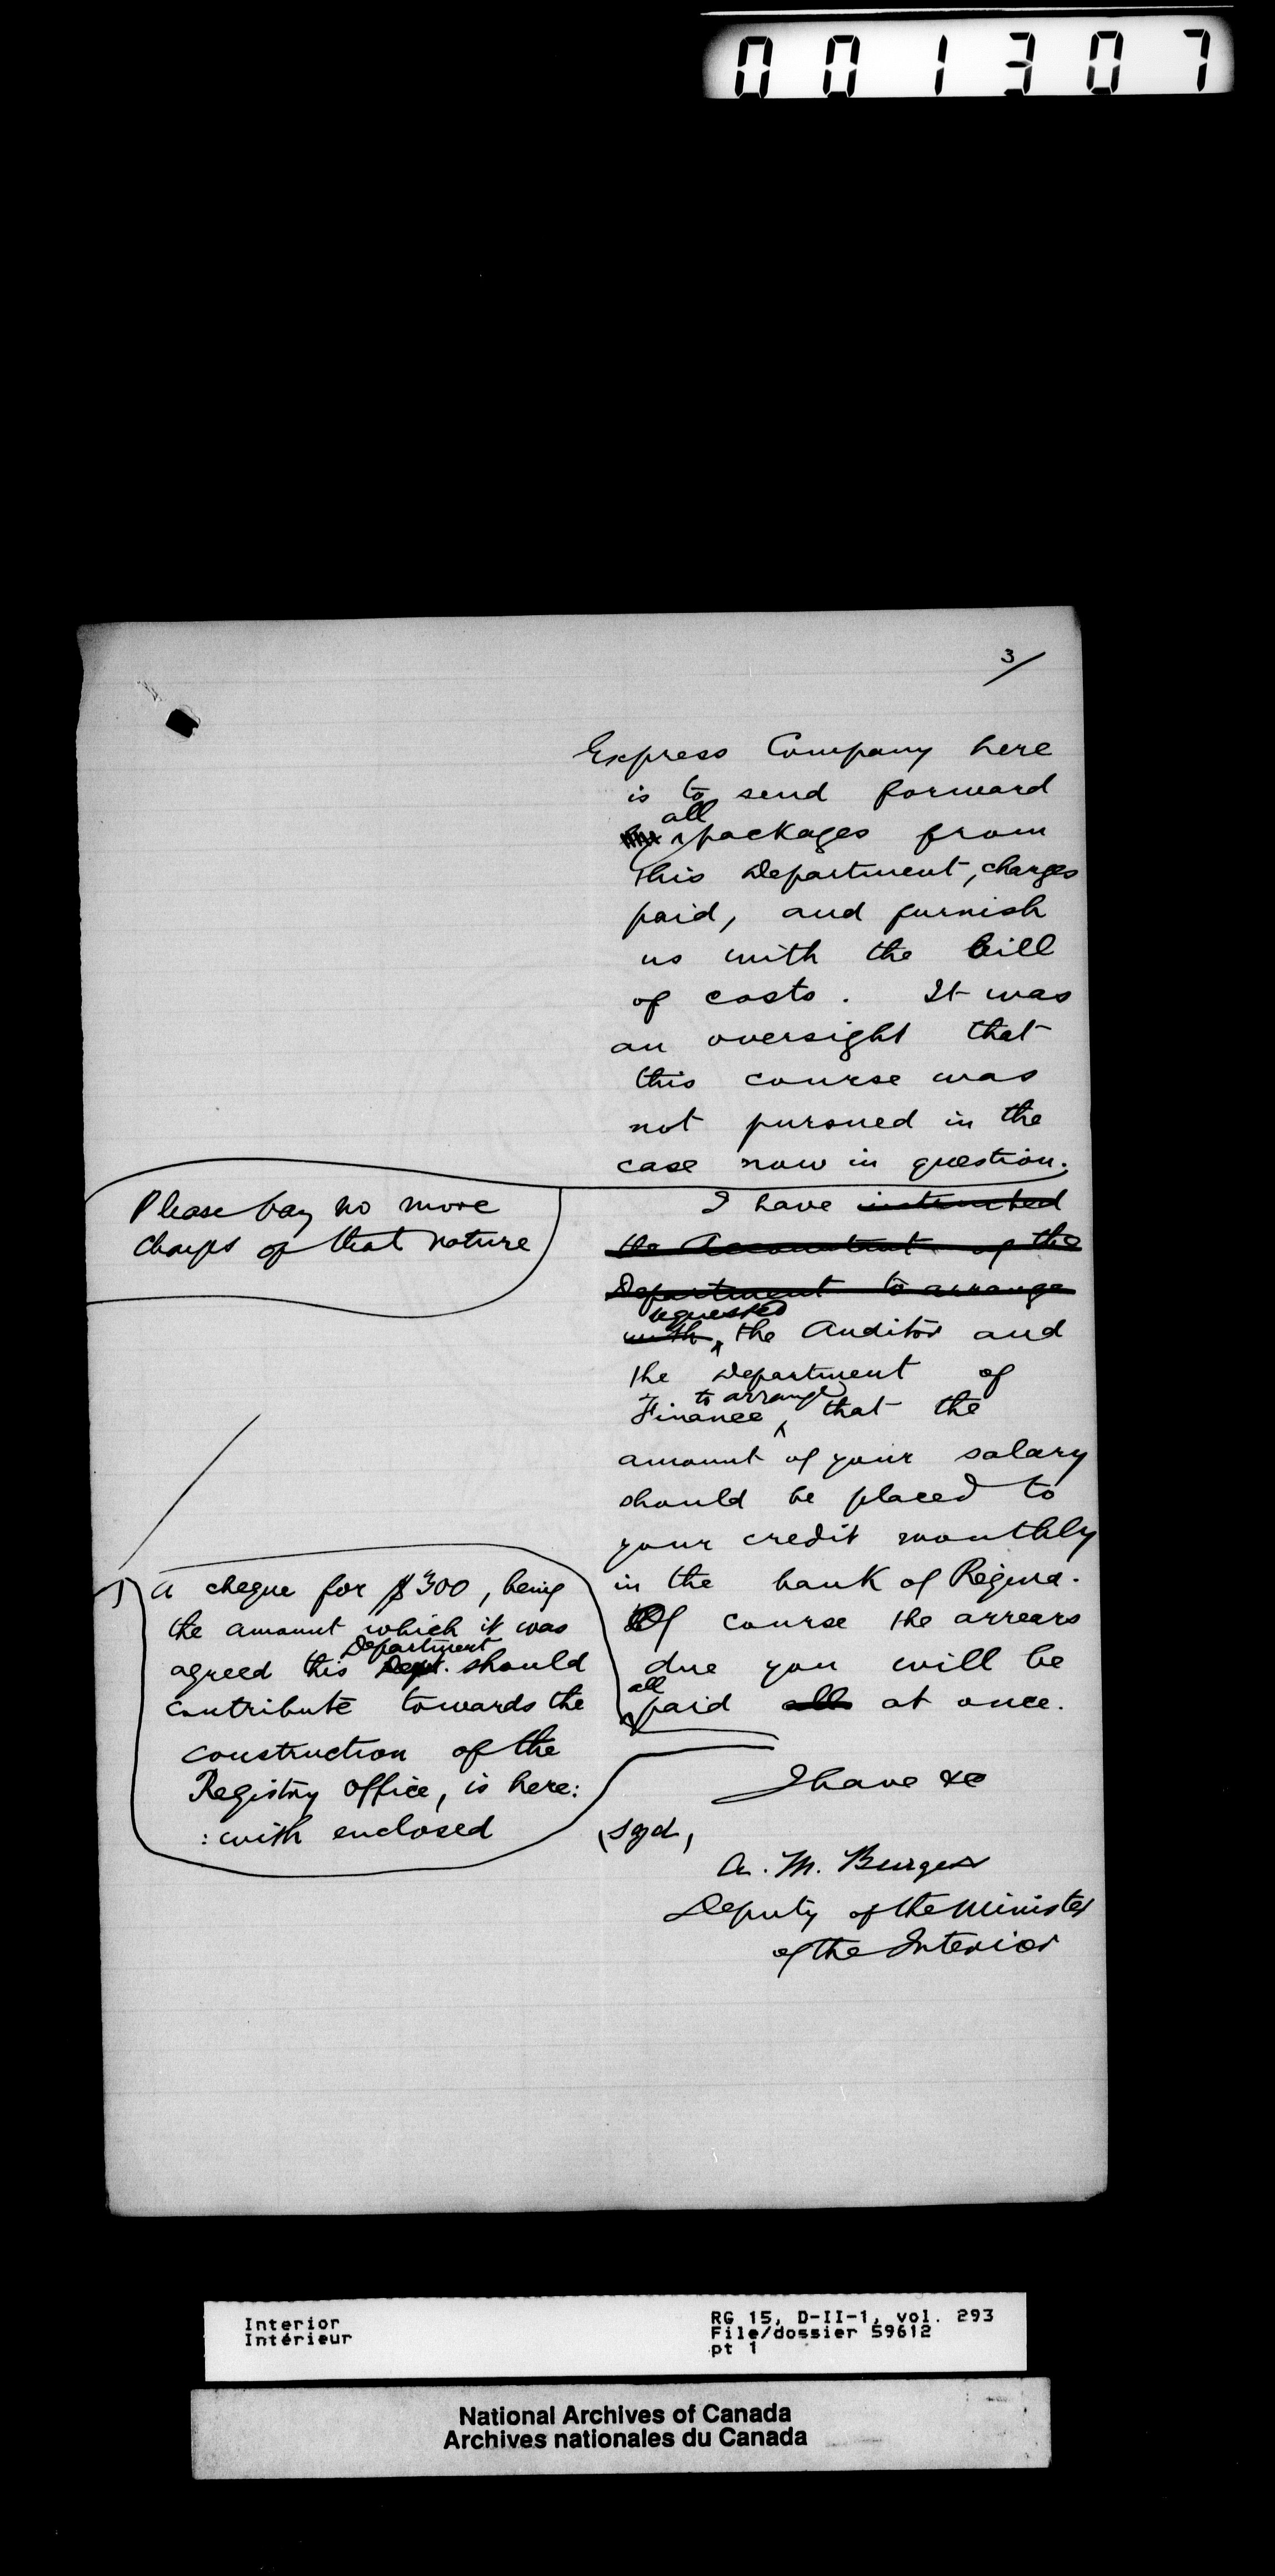 001307
3/
Express Company here
is to send forward
all
packages from
this Department, charges
paid, and furnish
us with the bill
of costs. It was
an oversight that
this course was
not pursued in the
case now in question.
Please pay no more
charges of that nature
I have instructed
the Accountant of the
Department to arrange
requested
with the Auditor and
the Department of
to arrange
Finance, that the
amount of your salary
should be placed to
your credit monthly
in the bank of Regina.
Of course the arrears
due you will be
all
paid all at once.
A cheque for $300, being
the amount which it was
Department
agreed this Dept. should
contribute towards the
construction of the
Registry Office, is here:
:with enclosed
I have &c
(Sgd,
A. M. Burgess
Deputy of the Minister
of the Interior
Interior
Intérieur
RG 15, D-II-1, vol. 293
File/dossier 59612
pt 1
National Archives of Canada
Archives nationales du Canada